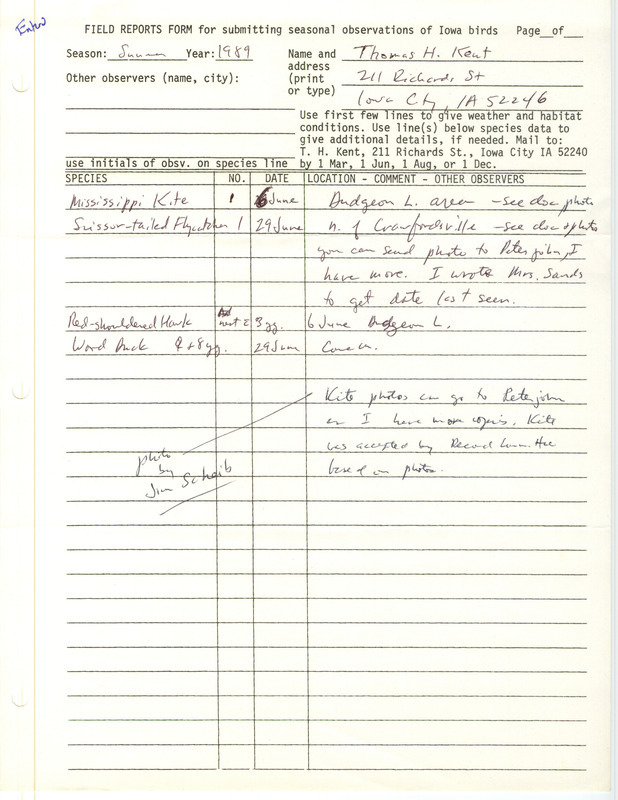 Entered
FIELD REPORTS FORM for submitting seasonal observations of Iowa birds Page__of__
Season: Summer Year: 1989 Name and Thomas H. Kent
address
Other observers (name, city): (print 211 Richards St
or type)
Iowa City, IA 52246
Use first few lines to give weather and habitat
conditions. Use line(s) below species data to
give additional details, if needed. Mail to:
T. H. Kent, 211 Richards St., Iowa City IA 52240
use initials of obsv. on species line by 1 Mar, 1 Jun, 1 Aug, or 1 Dec.
SPECIES NO. DATE LOCATION - COMMENT - OTHER OBSERVERS
Mississippi Kite 1 6 June Dudgeon L. area - see doc, photo
Scissor-tailed Flycatcher 1 29 June n. of Crawfordsville - see doc + photo
you can send photo to Peterjohn, I
have more. I wrote Mrs. Sands
to get date last seen.
Red-shouldered Hawk nest c 3 yg. 6 June Dudgeon L.
Wood Duck ♀+8yg. 29 June Cone M.
Kite photos can go to Peterjohn
as I have more copies. Kite
was accepted by Record Committee
based on photos.
photo
by
Jim Scheib